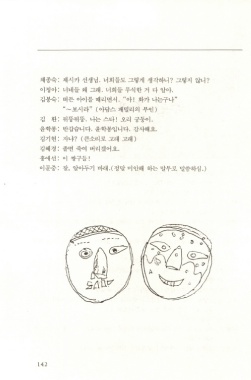 체종숙: 제시카 선생님, 너희들도 그렇게 생각하니? 그렇지 않니?
이정아: 너네들 왜 그래. 너희들 무식한 거 다 알아.
김봉숙: 때론 아이를 때리면서, "아! 화가 나는구나"
"~보시라" (아담스 패밀리의 부인)
김 환: 뒤뚱뒤뚱. 나는 스타! 오리 궁둥이.
윤학봉: 반갑습니다. 윤학봉입니다. 감사해요.
김기현: 자냐? (큰소리로 고래 고래)
김혜경: 쫑빈 죽여 버리겠어요.
홍예선: 이 짱구들!
이문주: 장, 앉아두기 바래. (정말 미안해 하는 말투로 말씀하심.)
142